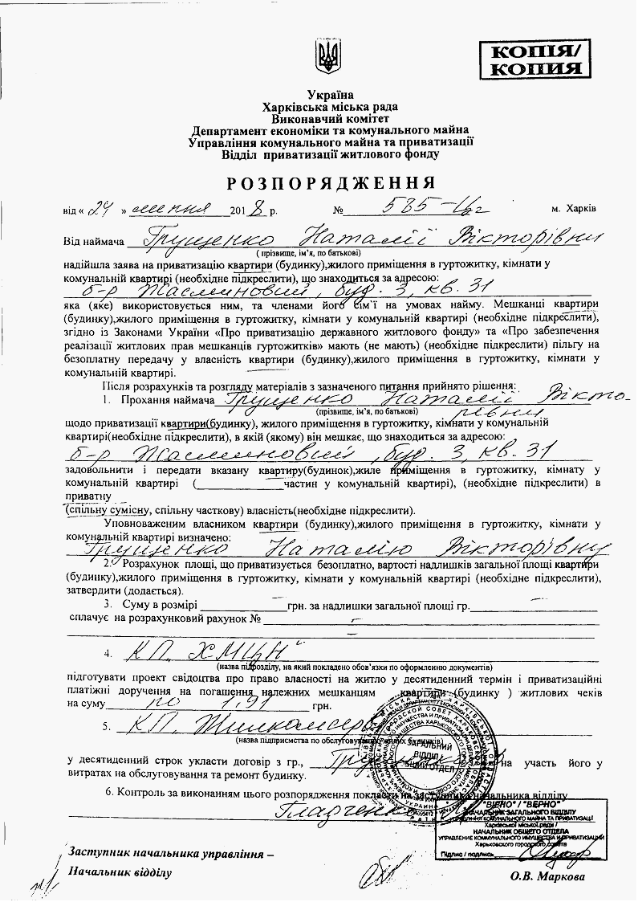 КОПІЯ/
КОПИЯ
Україна
Харківська міська рада
Виконавчий комітет
Департамент економіки та комунального майна
Управління комунального майна та приватизації
Відділ приватизації житлового фонду
РОЗПОРЯДЖЕННЯ
від « 24 » липня 2018 р. № 585-16г м. Харків
Від наймача Грущенко Наталії Вікторівни
( прізвище, ім'я, по батькові)
надійшла заява на приватизацію квартири (будинку),жилого приміщення в гуртожитку, кімнати у
комунальній квартирі (необхідне підкреслити), що знаходиться за адресою:
б-р Жасминовий, буд. 3, кв. 31
яка (яке) використовується ним, та членами його сім'ї на умовах найму. Мешканці квартири
(будинку),жилого приміщення в гуртожитку, кімнати у комунальній квартирі (необхідне підкреслити),
згідно із Законами України «Про приватизацію державного житлового фонду» та «Про забезпечення
реалізації житлових прав мешканців гуртожитків» мають (не мають) (необхідне підкреслити) пільгу на
безоплатну передачу у власність квартири (будинку),жилого приміщення в гуртожитку, кімнати у
комунальній квартирі.
Після розрахунків та розгляду матеріалів з зазначеного питання прийнято рішення:
1. Прохання наймача Грущенко Наталії Вікто-
(прізвище, ім'я, по батькові) рівни
щодо приватизації квартири(будинку), жилого приміщення в гуртожитку, кімнати у комунальній
квартирі(необхідне підкреслити), в якій (якому) він мешкає, що знаходиться за адресою:
б-р Жасминовий, буд. 3, кв. 31
задовольнити і передати вказану квартиру(будинок),жиле приміщення в гуртожитку, кімнату у
комунальній квартирі (____________частин у комунальній квартирі), (необхідне підкреслити) в
приватну
(спільну сумісну, спільну часткову) власність(необхідне підкреслити).
Уповноваженим власником квартири (будинку),жилого приміщення в гуртожитку, кімнати у
комунальній квартирі визначено:
Грущенко Наталію Вікторівну
2. Розрахунок площі, що приватизується безоплатно, вартості надлишків загальної площі квартири
(будинку),жилого приміщення в гуртожитку, кімнати у комунальній квартирі (необхідне підкреслити),
затвердити (додається).
3. Суму в розмірі ____________грн. за надлишки загальної площі гр.____________
сплачує на розрахунковий рахунок №
4. КП "ХМЦН"
(назва підрозділу, на який покладено обов'язки по оформленню документів)
підготувати проект свідоцтва про право власності на житло у десятиденний термін і приватизаційні
платіжні доручення на погашення належних мешканцям квартири (будинку ) житлових чеків
на суму по 1,91 грн.
5. КП
(назва підприємства по обслуговуванню
у десятиденний строк укласти договір з гр., на участь його у
витратах на обслуговування та ремонт будинку.
6. Контроль за виконанням цього розпорядження покласти на заступника начальника відділу
ЗАГАЛЬНИЙ
ВІДДІЛ
ОБЩИЙ ОТДЕЛ
"ВІРНО" / "ВЕРНО"
НАЧАЛЬНИК ЗАГАЛЬНОГО ВІДДІЛУ
УПРАВЛІННЯ КОМУНАЛЬНОГО МАЙНА ТА ПРИВАТИЗАЦІЇ
Харківської міської ради /
НАЧАЛЬНИК ОБЩЕГО ОТДЕЛА
УПРАВЛЕНИЕ КОММУНАЛЬНОГО ИМУЩЕСТВА И ПРИВАТИЗАЦИИ
Харьковского городского совета
Підпис / подпись
Заступник начальника управління –
Начальник відділу О.В. Маркова